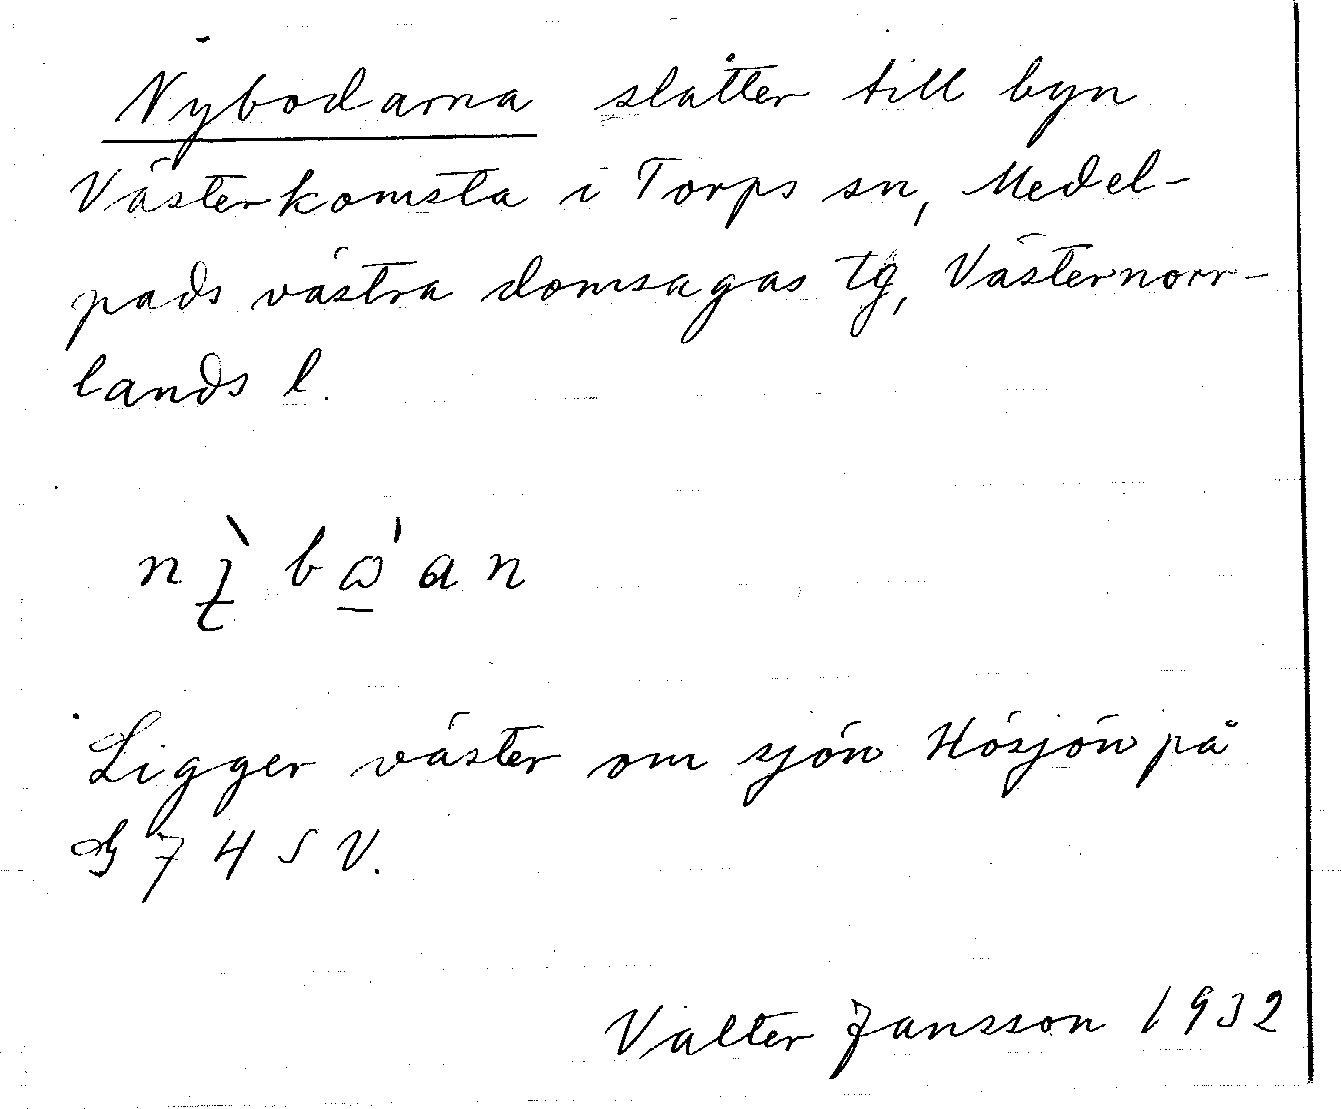 Nybodarna slåtter till byn
Västerkomsta i Torps sn, Medel-
pads västra domsagas tg, Västernorr-
lands l.
Ligger väster om sjön Hösjön på
G 74 SV.
Valter Jansson 1932